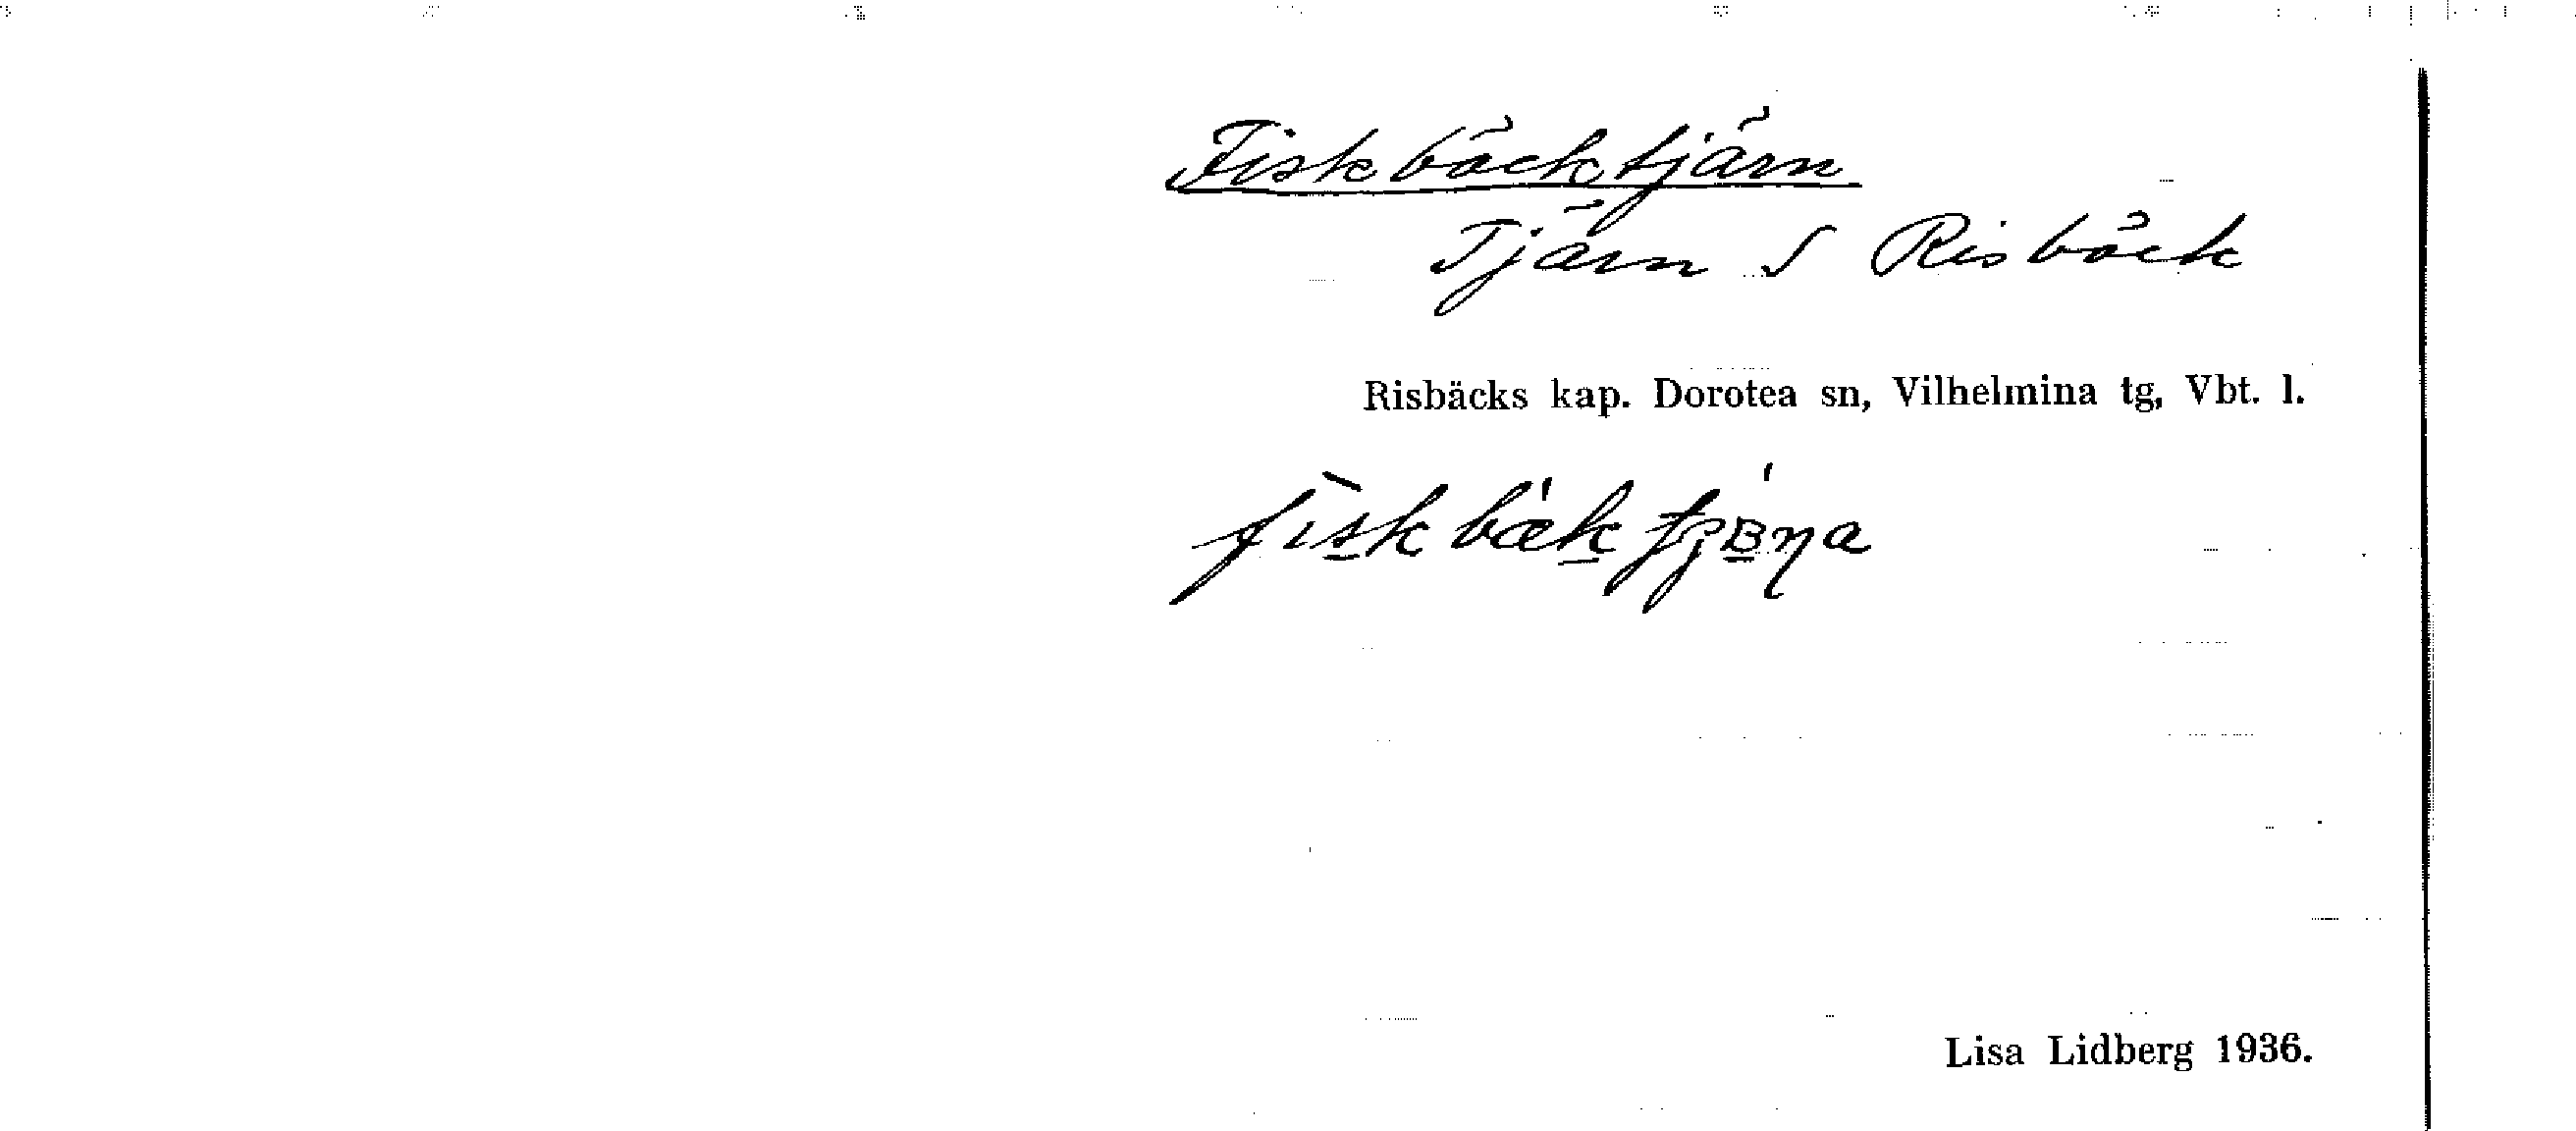 Fiskbäcktjärn
Tjärn S Risbäck
Risbäcks kap. Dorotea sn, Vilhelmina tg, Vbt. l.
Lisa Lidberg 1936.